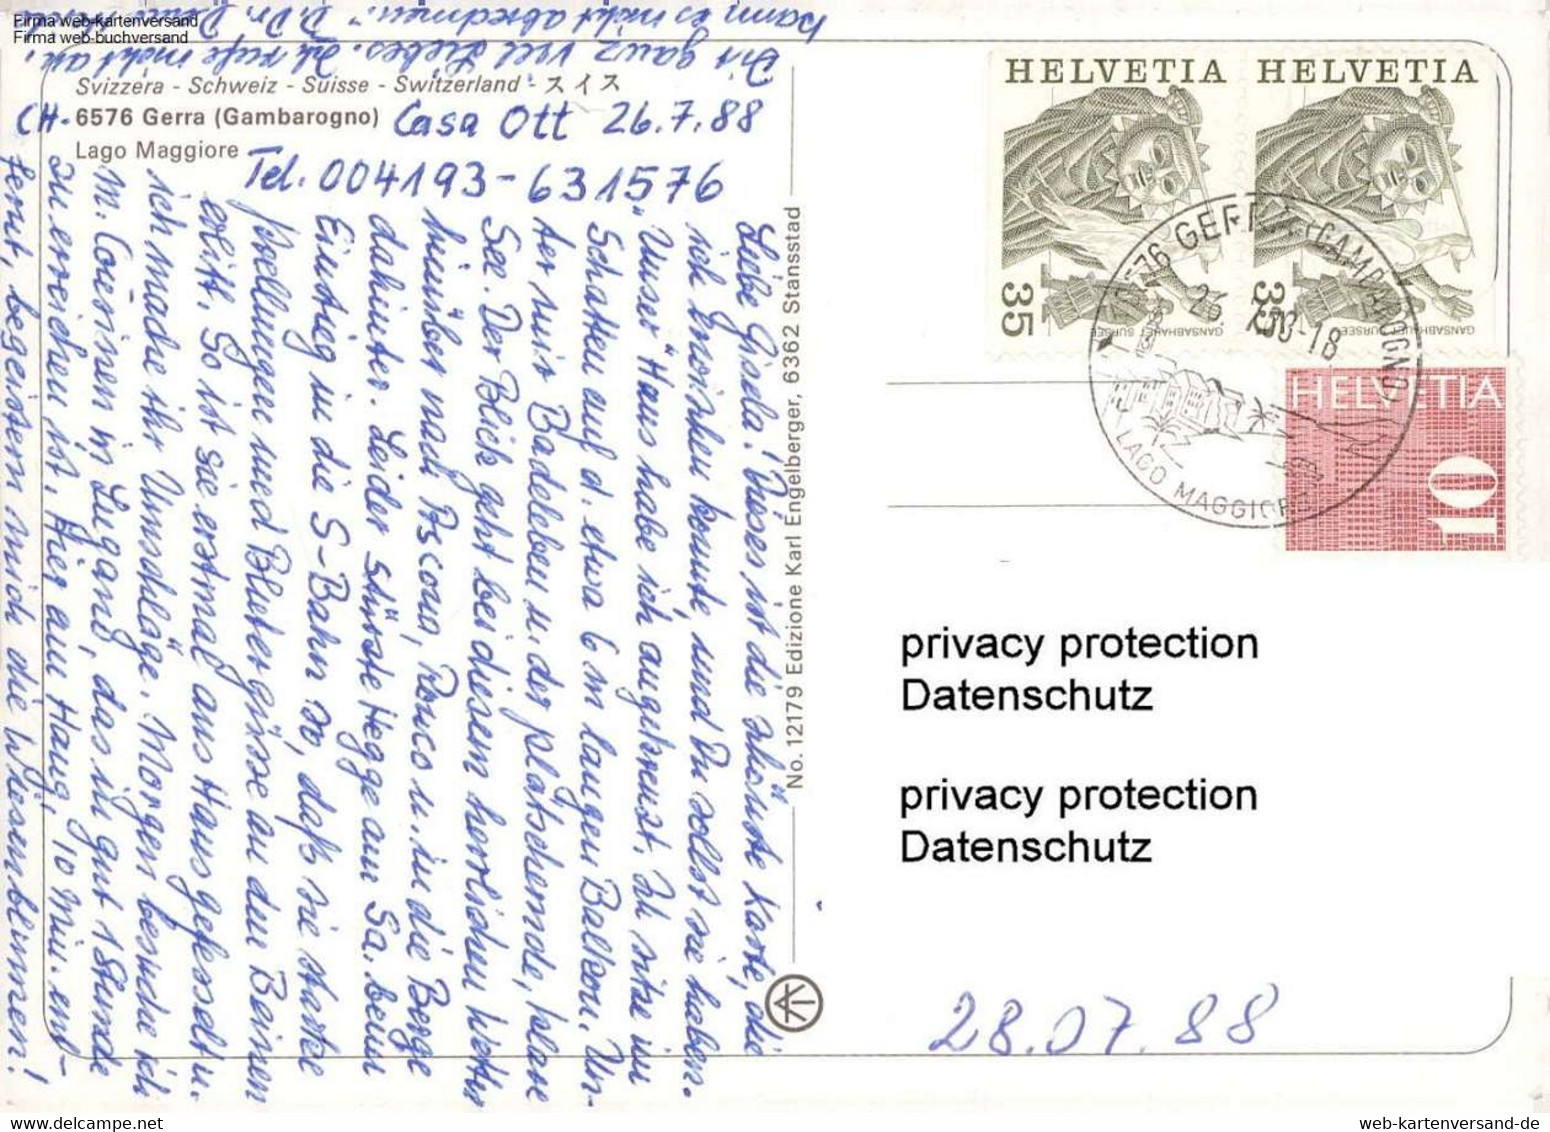 Firma web-kartenversand
Firma web-buchversand
Svizzera - Schweiz - Suisse - Switzerland - スイス
CH- 6576 Gerra (Gambarogno) Casa Ott 26.7.88
Lago Maggiore
Tel. 004193-631576
Liebe Gisela! Dieses ist die schönste Karte, die
ich erwischen konnte, und Du sollst sie haben.
"Unser" Haus habe ich angekreuzt. Ich sitze im
Schatten auf d. etwa 6 m langen Balkon. Un-
ter mir Badeleben u. der plätschernde, klare
See. Der Blick geht bei diesem herrlichen Wetter
hinüber nach Ascona, Ronco u. in die Berge
dahinter. Leider stürzte Hegge am Sa. beim
Einstieg in die S-Bahn so, daß sie starke
Prellungen und Blutergüsse an den Beinen
erlitt. So ist sie erstmal ans Haus gefesselt u.
ich mache ihr Umschläge. Morgen besuche ich
M. Coeninen in Lugano, das in gut 1 Stunde
zu erreichen ist. Hier am Haus, 10 Min. ent-
fernt, begeistern mich die Wiesenblumen!
Dir ganz viel Liebes. Ich rufe nicht an,
kann es nicht abrechnen." D. Dr.
No. 12179 Edizione Karl Engelberger, 6362 Stansstad
HELVETIA
35
GANSABHAUET SURSEE
HELVETIA
35
GANSABHAUET SURSEE
HELVETIA
10
6576 GERRA (GAMBAROGNO)
26. 7.88-18
LAGO MAGGIORE
privacy protection
Datenschutz
privacy protection
Datenschutz
28.07.88
web-kartenversand-de